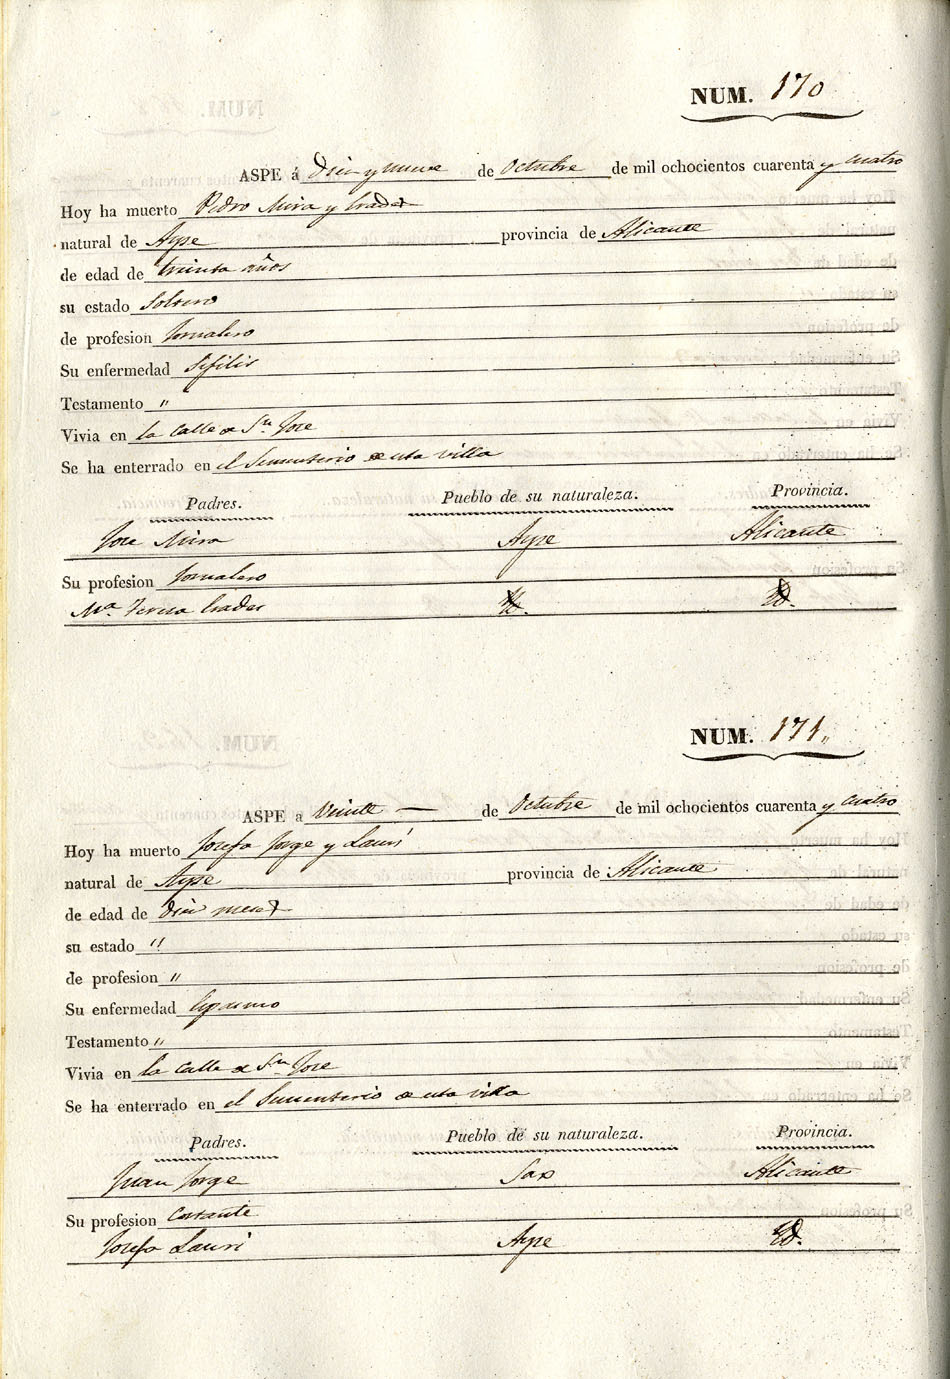 NUM. 170
ASPE á Diez y nueve de Octubre de mil ochocientos cuarenta y cuatro
Hoy ha muerto Pedro Mira y
natural de Aspe provincia de Alicante
de edad de treinta años
su estado Soltero
de profesion Jornalero
Su enfermedad Sifilis
Testamento "
Vivia en la Calle de Sn Jose
Se ha enterrado en el Sementerio de esta villa
Padres. Pueblo de su naturaleza. Provincia.
Jose Mira Aspe Alicante
Su profesion Jornalero
Ma. Teresa Id. Id.
NUM. 171.
ASPE a veinte — de Octubre de mil ochocientos cuarenta y cuatro
Hoy ha muerto Josefa Jorge y Lauri
natural de Aspe provincia de Alicante
de edad de diez meses
su estado "
de profesion "
Su enfermedad
Testamento "
Vivia en la Calle de Sn Jose
Se ha enterrado en el Sementerio de esta villa
Padres. Pueblo de su naturaleza. Provincia.
Juan Jorge Sax Alicante
Su profesion Cortante
Josefa Lauri Aspe Id.